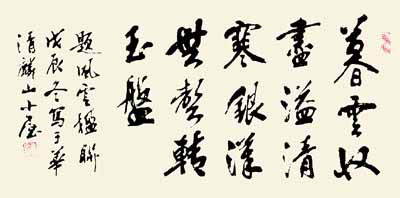 暮雲收
盡溢清
寒銀漢
無聲轉
玉盤
題風雲楹聯
戊辰冬寫于華
清麟山小屋